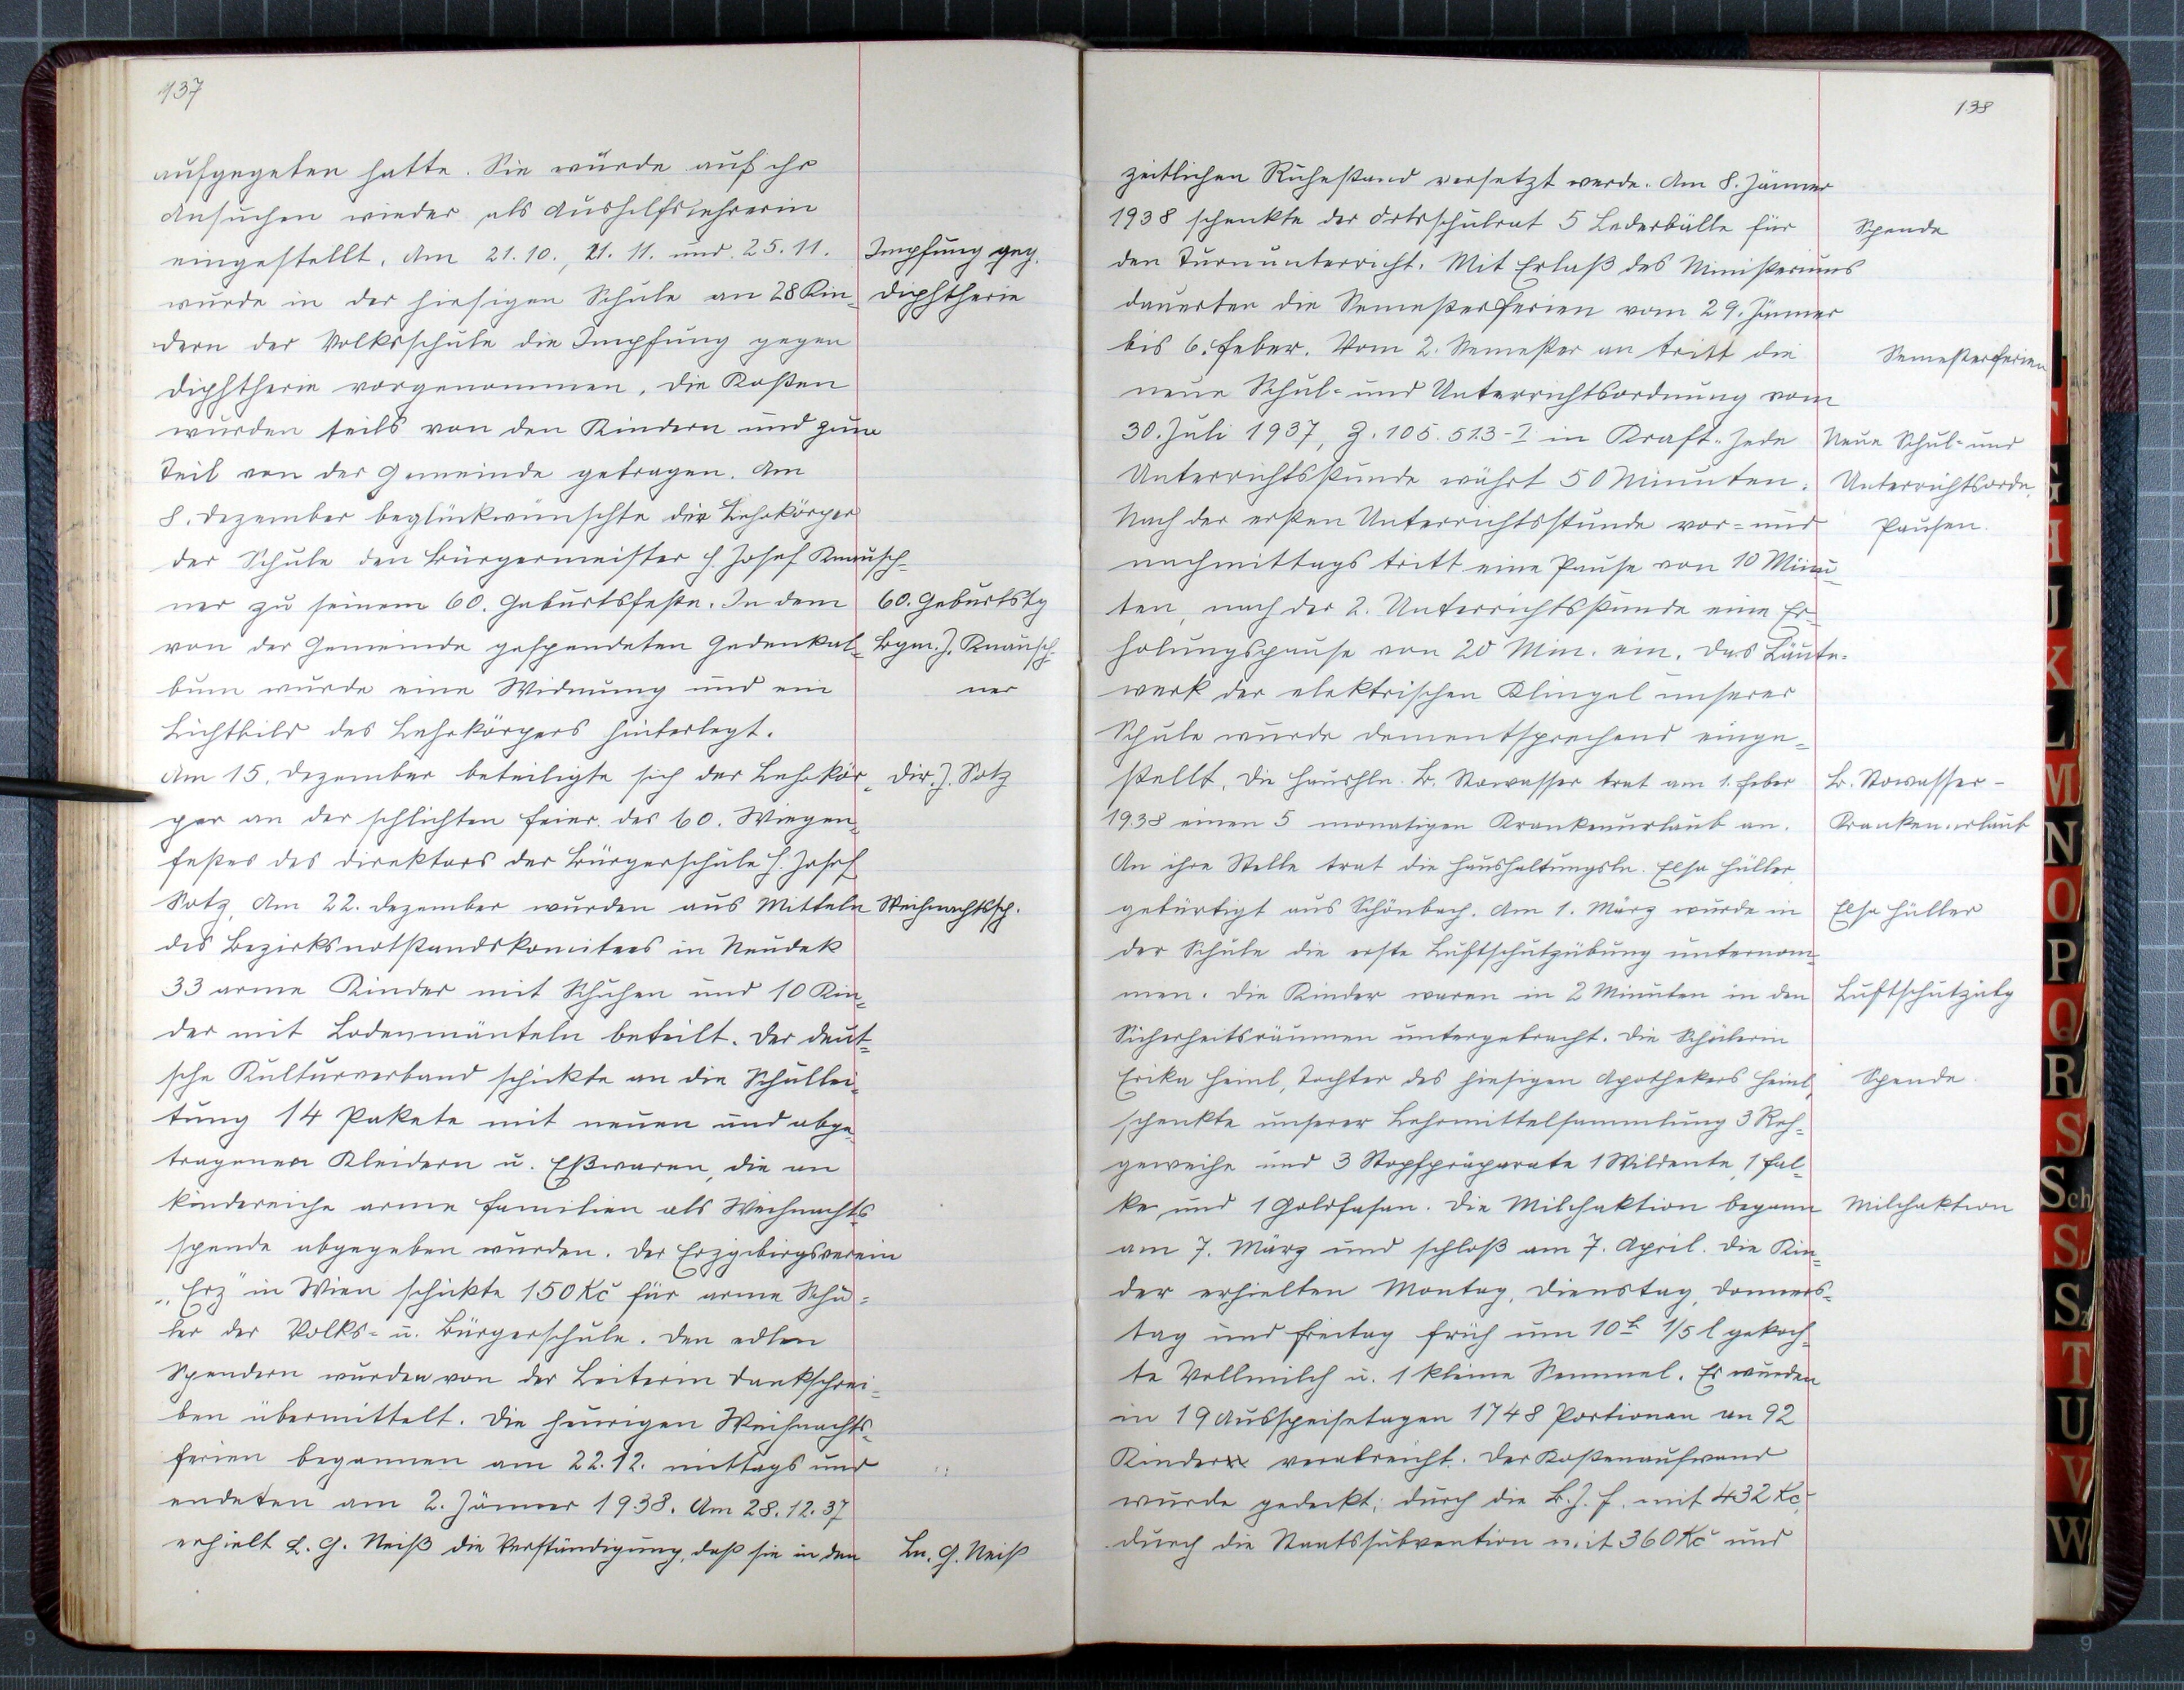 137
aufgegeben hatte. Sie wurde auf ihr
Ansuchen wieder als Aushilfslehrerin
eingestellt. Am 21.10., 21.11. und 25.11.
Impfung geg.
wurde in der hiesigen Schule an 28 Kin-
Diphtherie
dern der Volksschule die Impfung gegen
Diphtherie vorgenommen. Die Kosten
wurden teils von den Kindern und zum
Teil von der Gemeinde getragen. Am
8. Dezember beglückwünschte der Lehrkörper
der Schule den Bürgermeister H. Josef Knausch-
ner zu seinem 60. Geburtsfeste. In dem
60. Geburtstg
von der Gemeinde gespendeten Gedenkal-
Bgm. J. Knausch-
bum wurde eine Widmung und ein
ner
Lichtbild des Lehrkörpers hinterlegt.
Am 15. Dezember beteiligte sich der Lehrkör-
Dir. J. Sotz
per an der schlichten Feier des 60. Wiegen-
festes des Direktors der Bürgerschule H. Josef
Sotz. Am 22. Dezember wurden aus Mitteln
Weihnachtssp.
des Bezirksnotstandskomitees in Neudek
33 arme Kinder mit Schuhen und 10 Kin-
der mit Lodenmänteln beteilt. Der deut-
sche Kulturverband schickte an die Schullei-
tung 14 Pakete mit neuen und abge-
tragenen Kleidern u. Eßwaren, die an
kindereiche arme Familien als Weihnachts
spende abgegeben wurden. Der Erzgebirgsverein
"Erz" in Wien schickte 150 Kč für arme Schü-
ler der Volks- u. Bürgerschule. Den edlen
Spendern wurden von der Leiterin Dankschrei-
ben übermittelt. Die heurigen Weihnachts-
ferien begannen am 22.12. mittags und
endeten am 2. Jänner 1938. Am 28.12.37
erhielt L. G. Neiß die Verständigung, daß sie in den
Ln. G. Neiß
138
zeitlichen Ruhestand versetzt werde. Am 8. Jänner
1938 schenkte der Ortsschulrat 5 Lederbälle für
Spende
den Turnunterricht. Mit Erlaß des Ministeriums
dauerten die Semesterferien vom 29. Jänner
bis 6. Feber. Vom 2. Semester an tritt die
Semesterferien
neue Schul- und Unterrichtsordnung vom
30. Juli 1937, Z. 105.513-I in Kraft. Jede
Neue Schul- und
Unterrichtsstunde währt 50 Minuten.
Unterrichtsordn.
Nach der ersten Unterrichtsstunde vor- und
Pausen.
nachmittags tritt eine Pause von 10 Minu-
ten, nach der 2. Unterrichtsstunde eine Er-
holungspause von 20 Min. ein. Das Läute-
werk der elektrischen Klingel unserer
Schule wurde dementsprechend einge-
stellt. Die Haushln. B. Stowasser trat am 1. Feber
B. Stowasser -
1938 einen 5 monatigen Krankenurlaub an.
Krankenurlaub
An ihre Stelle trat die Haushaltungsln. Elsa Hüller
gebürtigt aus Schönbach. Am 1. März wurde in
Elsa Hüller
der Schule die erste Luftschutzübung unternom-
men. Die Kinder waren in 2 Minuten in den
Luftschutzübg
Sicherheitsräumen untergebracht. Die Schülerin
Erika Heinl, Tochter des hiesigen Apothekers Heinl,
Spende.
schenkte unserer Lehrmittelsammlung 3 Reh-
geweihe und 3 Stopfpräparate 1 Wildente, 1 Fal-
ke und 1 Goldfasan. Die Milchaktion begann
Milchaktion
am 7. März und schloß am 7. April. Die Kin-
der erhielten Montag, Dienstag, Donners-
tag und Freitag früh um 10h 1/5 l gekoch-
te Vollmilch u. 1 kleine Semmel. Es wurden
in 19 Ausspeisetagen 1748 Portionen an 92
Kinder verabreicht. Der Kostenaufwand
wurde gedeckt: durch die B.J.F. mit 432 Kč,
durch die Staatssubvention mit 360 Kč und
G
H
J
K
L
M
N
O
P
Q
R
S
Sch
St
Sz
T
U
V
W
9
9